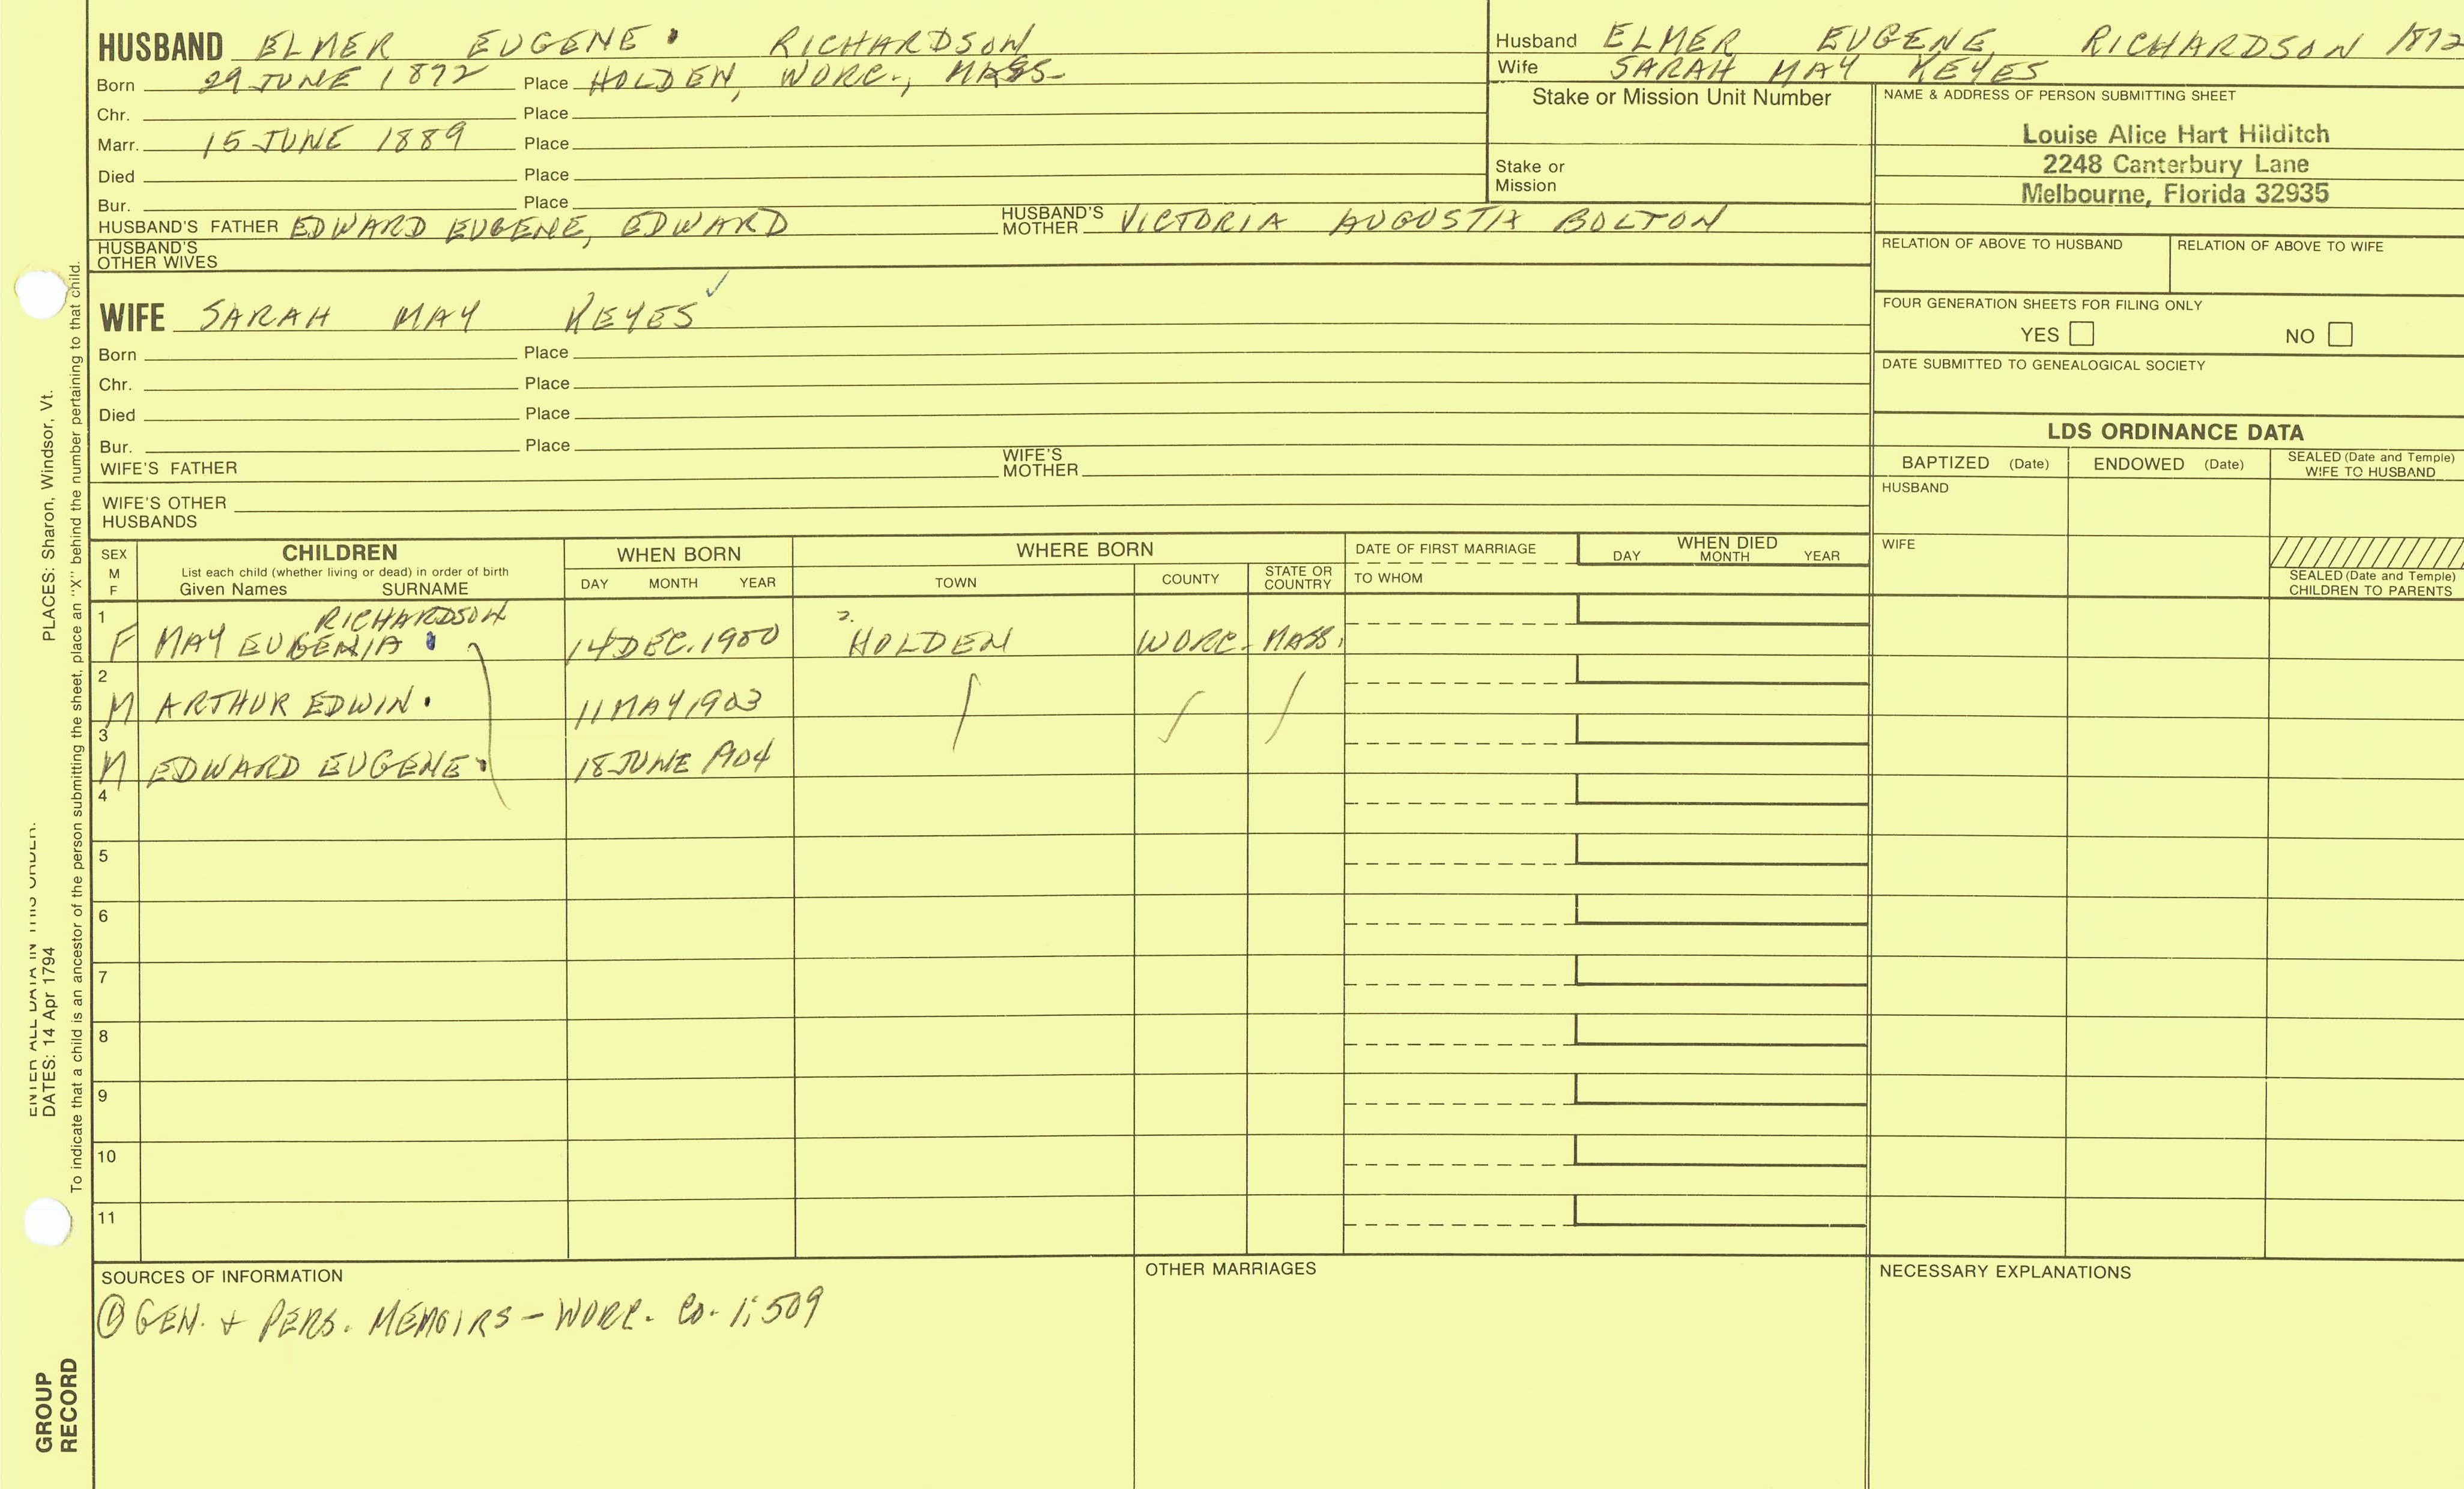 HUSBAND ELMER EUGENE RICHARDSON
Born 29 JUNE 1872 Place HOLDEN, WORC., MASS
Chr. Place
Marr. 15 JUNE 1889 Place
Died Place
Bur. Place
HUSBAND'S FATHER EDWARD EUGENE, EDWARD HUSBAND'S MOTHER VICTORIA AUGUSTA BOLTON
HUSBAND'S OTHER WIVES
Husband ELMER EUGENE RICHARDSON 1872
Wife SARAH MAY KEYES
Stake or Mission Unit Number
Stake or Mission
NAME & ADDRESS OF PERSON SUBMITTING SHEET
Louise Alice Hart Hilditch
2248 Canterbury Lane
Melbourne, Florida 32935
RELATION OF ABOVE TO HUSBAND RELATION OF ABOVE TO WIFE
FOUR GENERATION SHEETS FOR FILING ONLY
YES NO
DATE SUBMITTED TO GENEALOGICAL SOCIETY
WIFE SARAH MAY KEYES
Born Place
Chr. Place
Died Place
Bur. Place
WIFE'S FATHER WIFE'S MOTHER
WIFE'S OTHER HUSBANDS
LDS ORDINANCE DATA
BAPTIZED (Date) ENDOWED (Date) SEALED (Date and Temple) WIFE TO HUSBAND
HUSBAND
WIFE
SEALED (Date and Temple) CHILDREN TO PARENTS
SEX M F
CHILDREN
List each child (whether living or dead) in order of birth
Given Names SURNAME
WHEN BORN
DAY MONTH YEAR
WHERE BORN
TOWN COUNTY STATE OR COUNTRY
DATE OF FIRST MARRIAGE
TO WHOM
WHEN DIED
DAY MONTH YEAR
1 RICHARDSON
F MAY EUGENIA 14 DEC. 1900 HOLDEN WORC. MASS.
2
M ARTHUR EDWIN 11 MAY 1903
3
M EDWARD EUGENE 18 JUNE 1904
4
5
6
7
8
9
10
11
SOURCES OF INFORMATION
① GEN. + PERS. MEMOIRS - WORC. CO. 1:509
OTHER MARRIAGES
NECESSARY EXPLANATIONS
PLACES: Sharon, Windsor, Vt.
DATES: 14 Apr 1794
To indicate that a child is an ancestor of the person submitting the sheet, place an "X" behind the number pertaining to that child.
GROUP RECORD